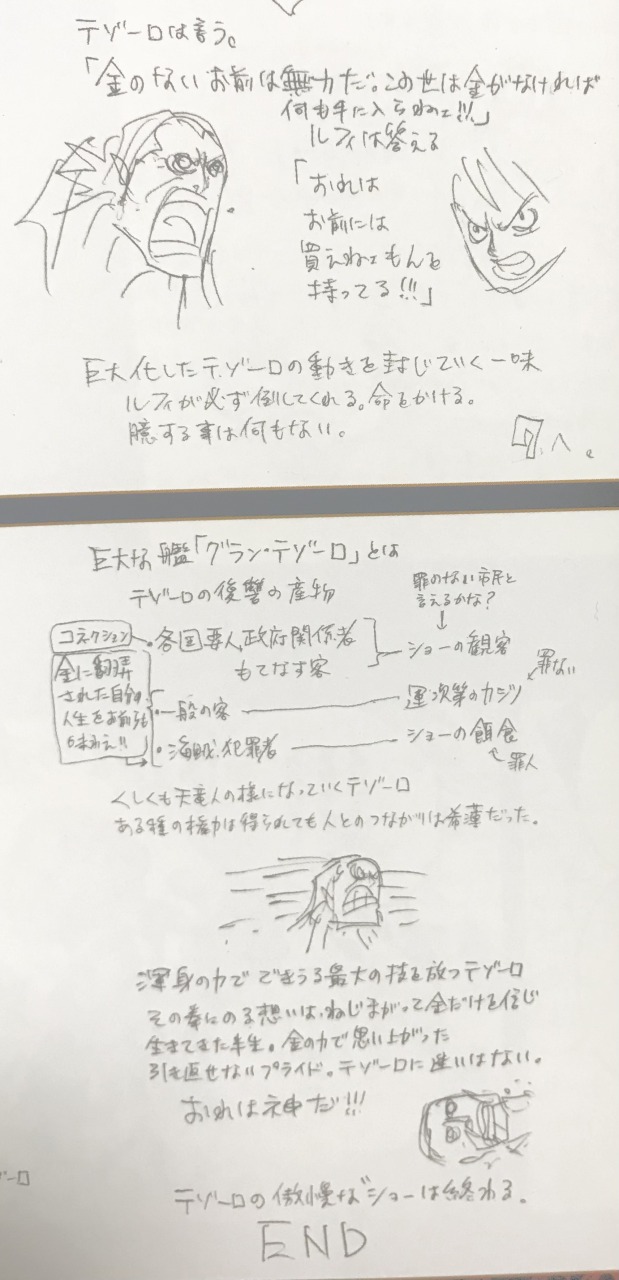 テゾーロは言う。
「金のないお前は無力だ。この世は金がなければ
何も手に入らねェ!!!」
ルフィは答える
「おれは
お前には
買えねェもんを
持ってる!!!」
巨大化したテゾーロの動きを封じていく一味
ルフィが必ず倒してくれる。命をかける。
臆する事は何もない。
へ。
巨大な艦「グラン・テゾーロ」とは
テゾーロの復讐の産物
罪のない市民と
言えるかな?
コネクション
・各国要人、政府関係者
もてなす客
ショーの観客
金に翻弄
された自分の
人生をお前らも
味わえ!!
・一般の客
運次第のカジノ
罪ない
・海賊、犯罪者
ショーの餌食
罪人
くしくも天竜人の様になっていくテゾーロ
ある種の権力は得られても人とのつながりは希薄だった。
渾身の力でできうる最大の技を放つテゾーロ
その拳にのる想いは、ねじまがって金だけを信じ
生きてきた半生。金の力で思い上がった
引き直せないプライド。テゾーロに迷いはない。
おれは神だ!!!
テゾーロの傲慢なショーは終わる。
END
ーロ